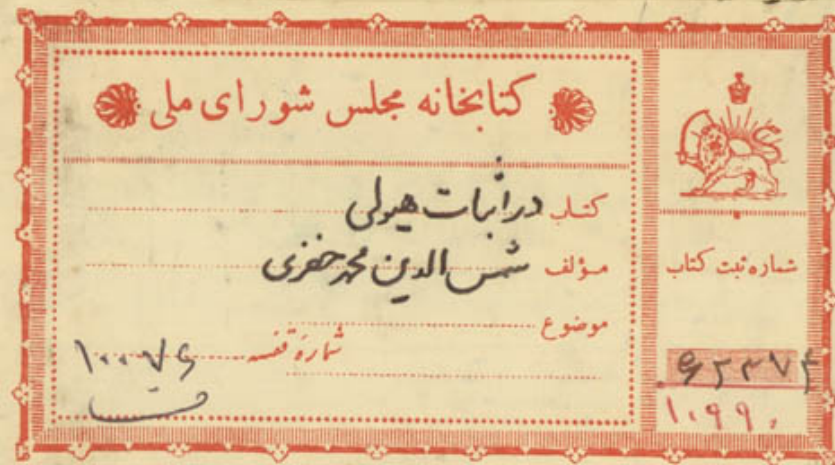 کتابخانه مجلس شورای ملی
کتاب در اثبات هیولی
مؤلف شمس الدین محمد خفری
موضوع
شماره قفسه ۱۰۰۷۶
شماره ثبت کتاب
۱۰۹۹۰